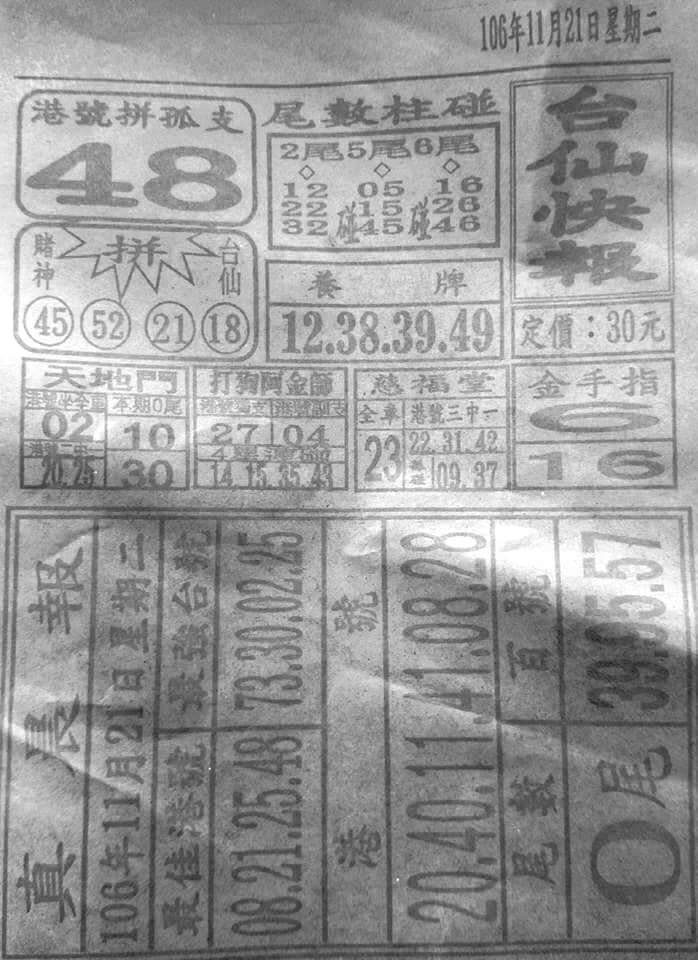 106年11月21日星期二
台仙快報
定價：30元
港號拼孤支
48
尾數柱碰
2尾5尾6尾
12 05 16
22碰15碰26
32 45 46
賭神 拼 台仙
45 52 21 18
養 牌
12.38.39.49
天地門
港號坐全車 本期0尾
02 10
20.25 30
打狗阿金師
港號獨支 港號副支
27 04
14.15.35.43
慈福堂
全車 港號三中一
23 22.31.42
09.37
金手指
6
16
真晨報
106年11月21日星期二
最佳港號 最強台號
08.21.25.48 73.30.02.25
港 號
20.40.11.41.08.28
尾數 百號
0尾 39.95.57